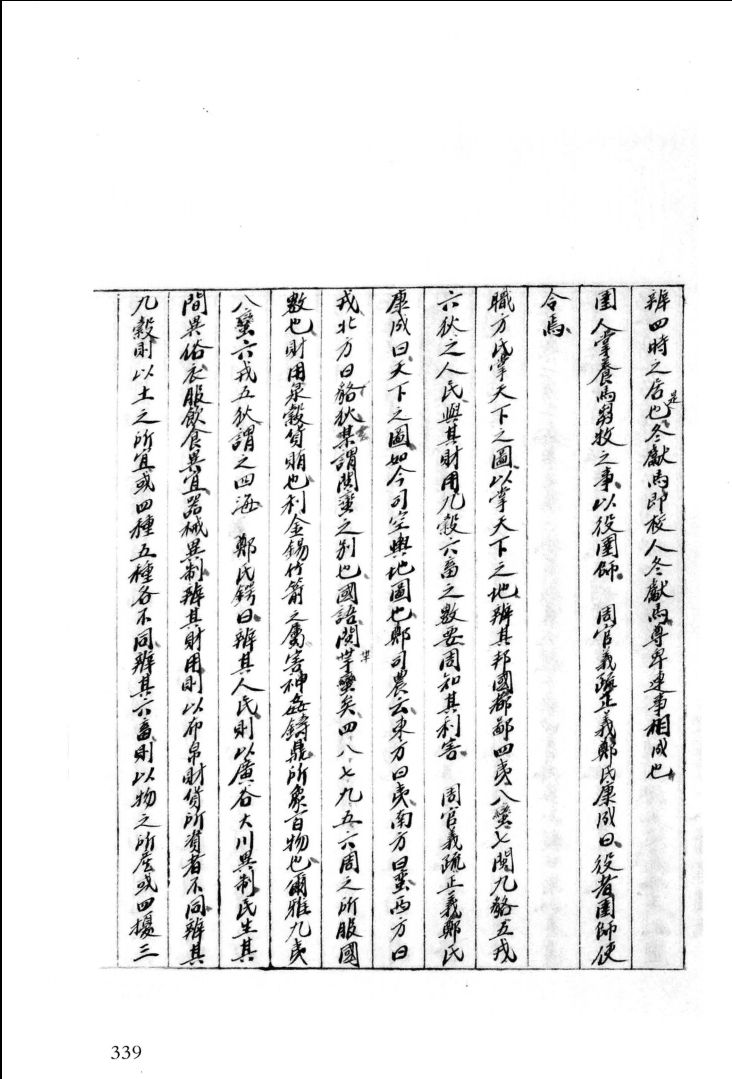 辨四時之居也是冬獻馬即校人冬獻馬尊卑連事相成也
圉人掌養馬芻牧之事以役圉師 周官義疏正義鄭氏康成曰役者圉師使
令焉
職方氏掌天下之圖以掌天下之地辨其邦國都鄙四夷八蠻七閩九貉五戎
六狄之人民與其財用九穀六畜之數要周知其利害 周官義疏正義鄭氏
康成曰天下之圖如今司空輿地圖也鄭司農云東方曰夷南方曰蠻西方曰
戎北方曰貉狄某謂閩蠻之別也國語閩芈蠻矣四八七九五六周之所服國
數也財用泉穀貨賄也利金錫竹箭之屬害神姦鑄鼎所象百物也爾雅九夷
八蠻六戎五狄謂之四海 鄭氏鍔曰辨其人民則以廣谷大川異制民生其
間異俗衣服飲食異宜器械異制辨其財用則以布帛財貨所資者不同辨其
九穀則以土之所宜或四種五種各不同辨其六畜則以物之所產或四擾三
339